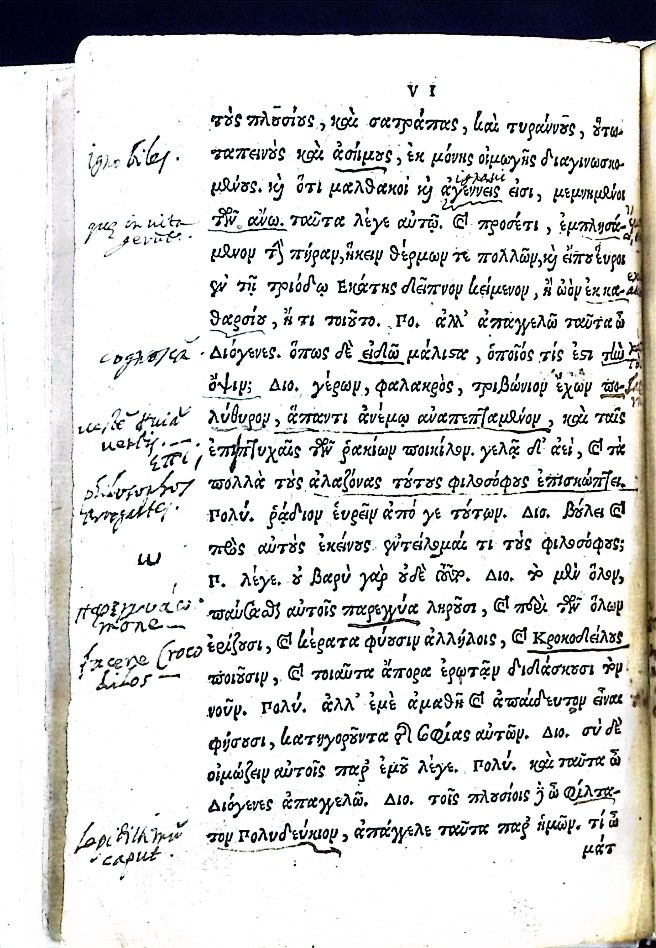 VI
τοὺς πλουσίους, καὶ σατράπας, καὶ τυράννους, οὕτω
ταπεινοὺς καὶ ἀσήμους, ἐκ μόνης οἰμωγῆς διαγινωσκο-
μένους. καὶ ὅτι μαλθακοὶ καὶ ἀγεννεῖς εἰσι, μεμνημένοι
τῶν ἄνω. ταῦτα λέγε αὐτῷ. καὶ προσέτι, ἐμπλησά-
μενον τὴν πήραν, ἥκειν θέρμων τε πολλῶν, καὶ εἴ που εὕροι
ἐν τῇ τριόδῳ Εκάτης δεῖπνον κείμενον, ἢ ὠὸν ἐκ κα-
θαρσίου, ἤ τι τοιοῦτο. Πο. ἀλλ' ἀπαγγελῶ ταῦτα ὦ
Διόγενες. ὅπως δὲ εἰδῶ μάλιστα, ὁποῖός τίς ἐστι τὴν
ὄψιν; Διο. γέρων, φαλακρὸς, τριβώνιον ἔχων πο-
λύθυρον, ἅπαντι ἀνέμῳ ἀναπεπταμένον, καὶ ταῖς
ἐπιπτυχαῖς τῶν ῥακίων ποικίλον. γελᾷ δ' ἀεὶ, καὶ τὰ
πολλὰ τοὺς ἀλαζόνας τούτους φιλοσόφους ἐπισκώπτει.
Πολύ. ῥᾴδιον εὑρεῖν ἀπό γε τούτων. Διο. βούλει καὶ
πρὸς αὐτοὺς ἐκείνους ἐντείλομαί τι τοὺς φιλοσόφους;
Π. λέγε. οὐ βαρὺ γὰρ οὐδὲ τοῦτο. Διο. τὸ μὲν ὅλον,
παύσασθαι αὐτοῖς παρεγγύα ληροῦσι, καὶ περὶ τῶν ὅλων
ἐρίζουσι, καὶ κέρατα φύουσιν ἀλλήλοις, καὶ Κροκοδείλους
ποιοῦσιν, καὶ τοιαῦτα ἄπορα ἐρωτᾷν διδάσκουσι τὸν
νοῦν. Πολύ. ἀλλ' ἐμὲ ἀμαθῆ καὶ ἀπαίδευτον εἶναι
φήσουσι, κατηγοροῦντα τῆς σοφίας αὐτῶν. Διο. σὺ δὲ
οἰμώζειν αὐτοῖς παρ' ἐμοῦ λέγε. Πολύ. καὶ ταῦτα ὦ
Διόγενες ἀπαγγελῶ. Διο. τοῖς πλουσίοις δ' ὦ φίλτα-
τον Πολυδεύκιον, ἀπάγγελε ταῦτα παρ' ἡμῶν. τί ὦ
μάτ
ignobiles.
que in vita
ω
facere Croco
dilos
caput.